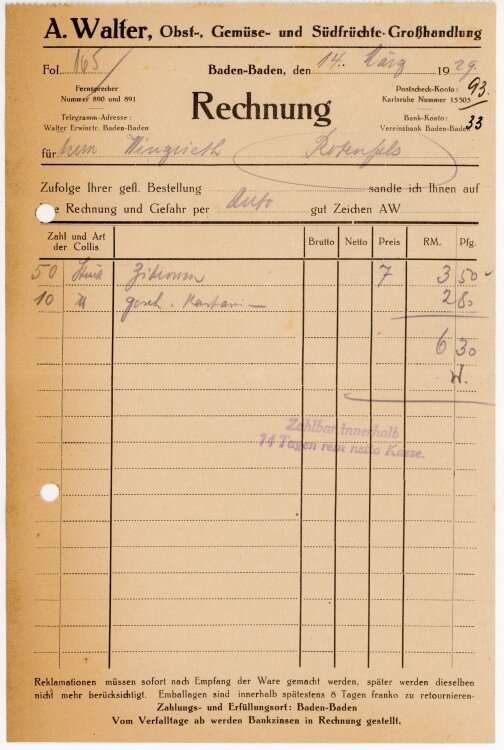 A. Walter, Obst-, Gemüse- und Südfrüchte-Großhandlung
Fol. 165
Baden-Baden, den 14. März 1929.
Fernsprecher
Nummer 890 und 891
Postscheck-Konto: 93.
Karlsruhe Nummer 15305
Rechnung
Telegramm-Adresse:
Walter Erwinstr. Baden-Baden
Bank-Konto: 33
Vereinsbank Baden-Baden
für Rotenfels
Zufolge Ihrer gefl. Bestellung sandte ich Ihnen auf
e Rechnung und Gefahr per Auto gut Zeichen AW
Zahl und Art der Collis Brutto Netto Preis RM. Pfg.
50 Stück Zitronen 7 3 50
10 2 80
6 30
W.
Zahlbar innerhalb
14 Tagen rein netto Kasse.
Reklamationen müssen sofort nach Empfang der Ware gemacht werden, später werden dieselben
nicht mehr berücksichtigt. Emballagen sind innerhalb spätestens 8 Tagen franko zu retournieren-
Zahlungs- und Erfüllungsort: Baden-Baden
Vom Verfalltage ab werden Bankzinsen in Rechnung gestellt.